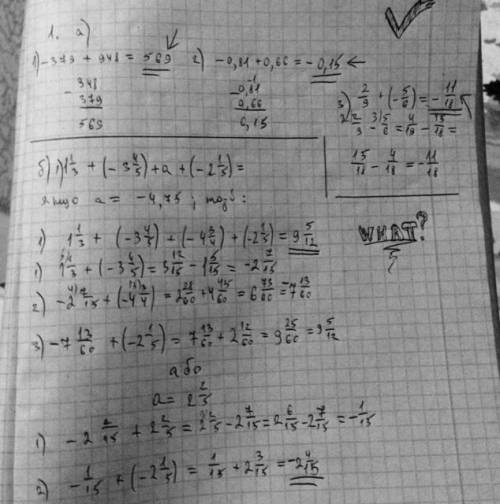 1. а)
1) -379 + 948 = 569
948
- 379
569
2) -0,81 + 0,66 = -0,15
- 0,81
0,66
0,15
3) 2/9 + (-5/6) = -11/18
2/9 - 5/6 = 4/18 - 15/18 =
15/18 - 4/18 = -11/18
б) 1) 1 1/3 + (-3 4/5) + a + (-2 1/5) =
якщо a = -4,75; тоді:
1) 1 1/3 + (-3 4/5) + (-4 3/4) + (-2 1/5) = 9 5/12
1) 1 1/3 + (-3 4/5) = 3 12/15 - 1 5/15 = -2 7/15
2) -2 7/15 + (-4 3/4) = 2 28/60 + 4 45/60 = 6 73/60 = -7 13/60
3) -7 13/60 + (-2 1/5) = 7 13/60 + 2 12/60 = 9 25/60 = 9 5/12
WHAT?
або
a = 2 2/5
1) -2 7/15 + 2 2/5 = 2 2/5 - 2 7/15 = 2 6/15 - 2 7/15 = -1/15
2) -1/15 + (-2 1/5) = 1/15 + 2 3/15 = -2 4/15